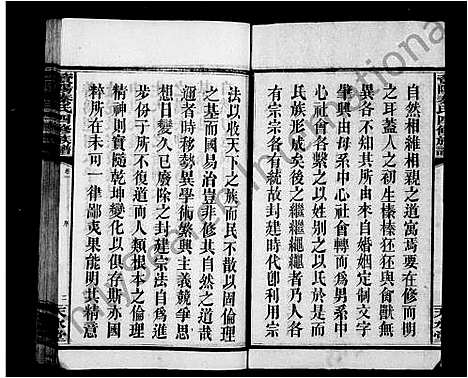 自然相維相親之道寓焉要在修而明
之耳蓋人之初生榛榛狉狉與禽獸無
異不知其所由來自婚姻定制文字
孳興由母系中心社會轉而爲男系中
心社會各繫之以姓別之以氏於是而
民族形成矣後之繼繼繩繩者乃人各
有宗宗各有統故封建時代卽利用宗
法以收天下之族而民不散以固倫理
之基而國易治豈非修其自然之道哉
迥者時移勢異學術繁興主義競爭思
想日變久已廢除之封建宗法自爲進
步份子所不復道而人類根本之倫理
精神則實隨乾坤變化以俱存斯亦國
粹所在未可一律鄙夷果能明其精意
氏四修族譜
卷一
序
二
天水堂